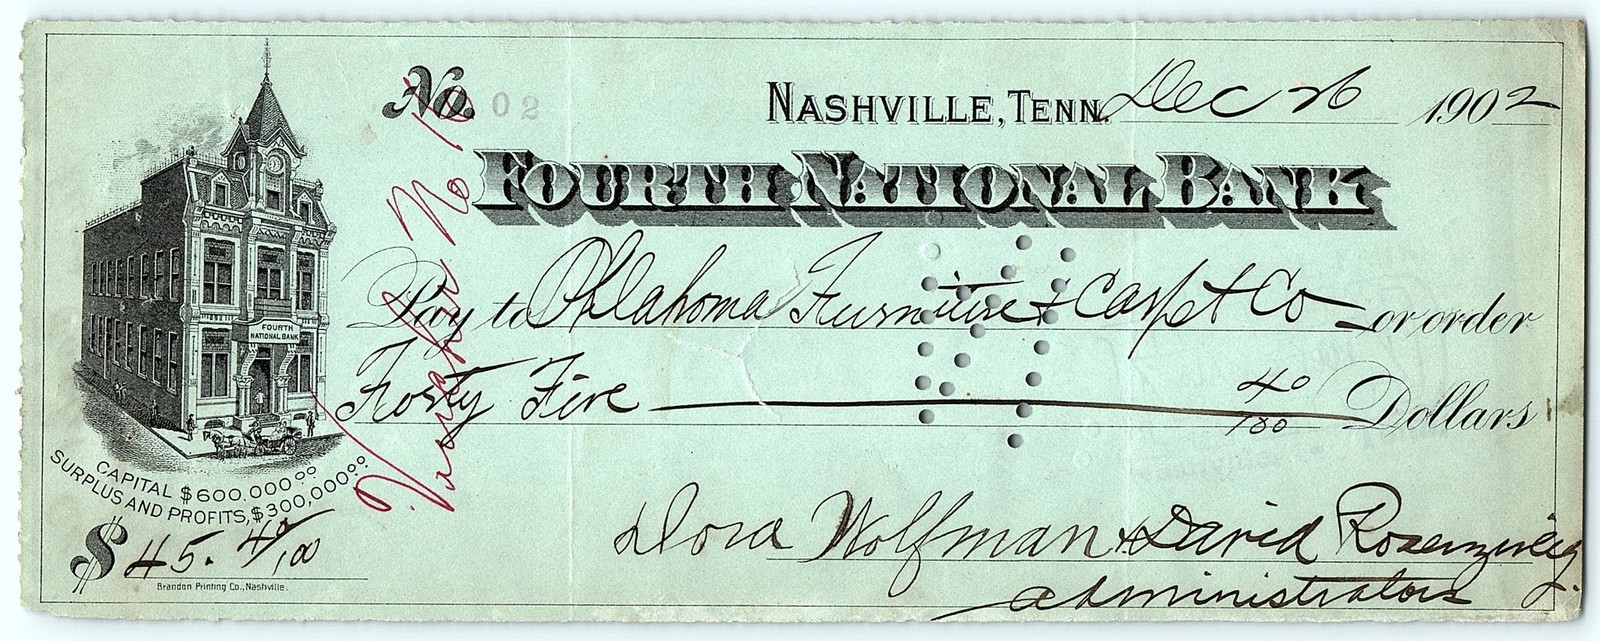 No. 02
NASHVILLE, TENN. Dec 26 1902
FOURTH NATIONAL BANK
Pay to Oklahoma Furniture & Carpet Co or order
Forty Five 40/100 Dollars
FOURTH
NATIONAL BANK
CAPITAL $600,000.00
SURPLUS AND PROFITS, $300,000.00
$ 45. 40/100
Brandon Printing Co., Nashville.
Voucher No 10
Dora Wolfman & David Rosenzweig
administrators